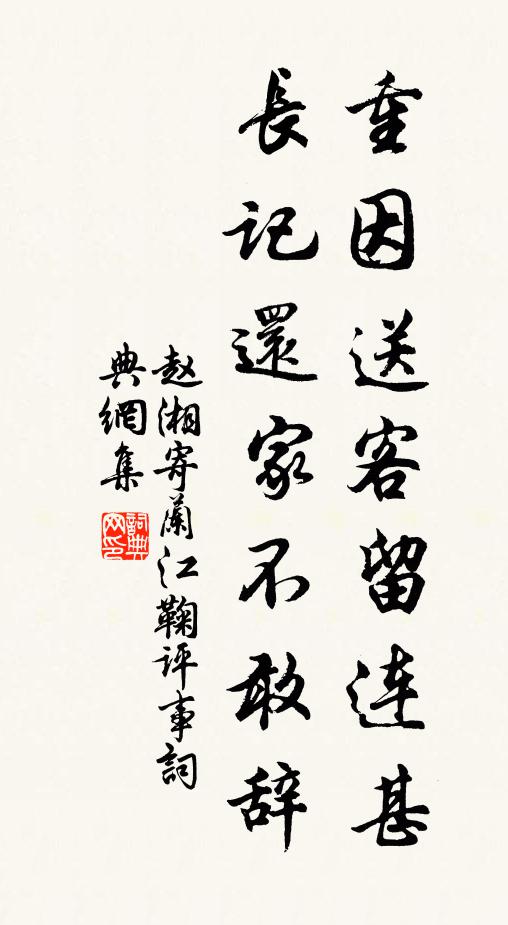 重因送客留连甚
長記還家不敢辞
赵湘寄蘭江鞠评事詞
典網集
詞典
网印